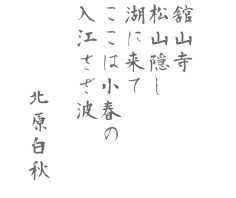 舘山寺
松山隠し
湖に来て
ここは小春の
入江さざ波
北原白秋